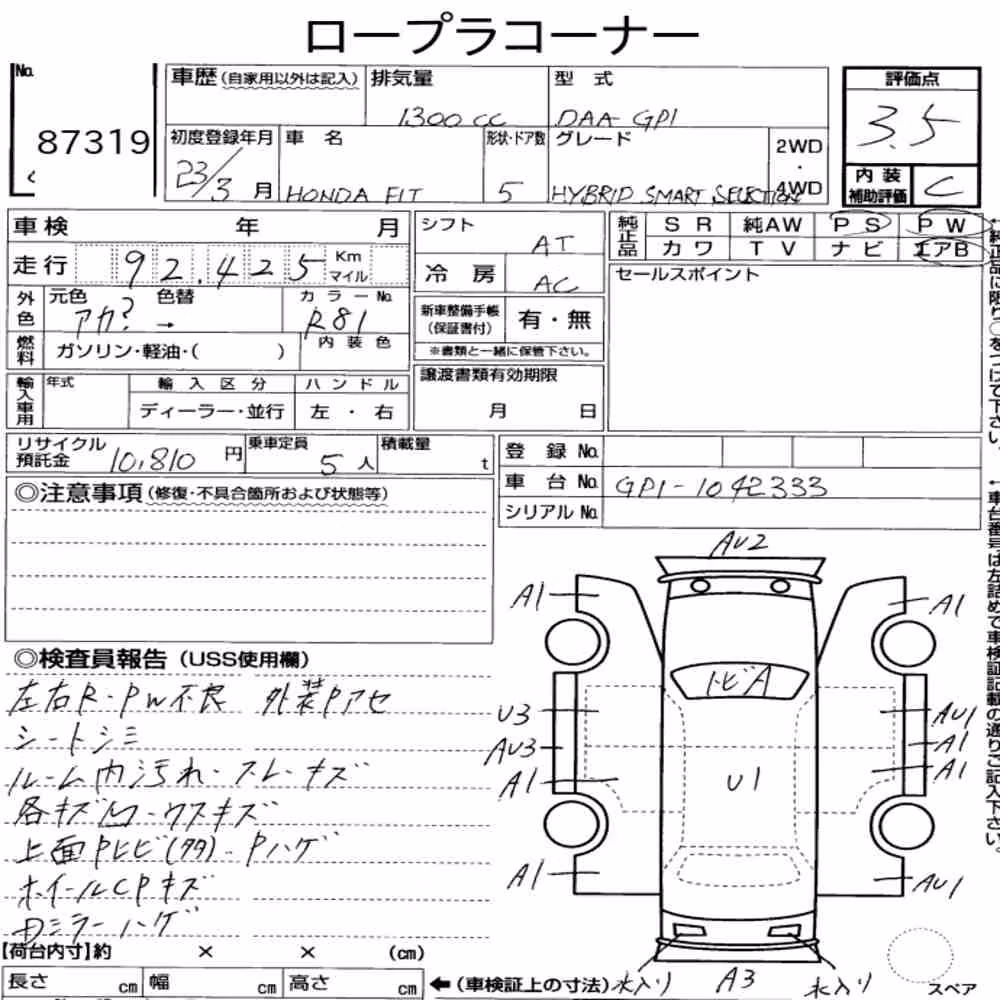 ロープラコーナー
No.
87319
車歴(自家用以外は記入)
排気量
1300cc
型式
DAA-GP1
評価点
3.5
初度登録年月
23/3月
車名
HONDA FIT
形状・ドア数
5
グレード
HYBRID SMART SELECTION
2WD
・
4WD
内装
補助評価
C
車検 年 月
シフト
AT
純正品
SR 純AW PS PW
カワ TV ナビ エアB
走行 92,425 Km
マイル
冷房
AC
セールスポイント
外色
元色 色替 カラーNo.
アカ? → R81
新車整備手帳
(保証書付)
有・無
※書類と一緒に保管下さい。
燃料
ガソリン・軽油・( )
内装色
譲渡書類有効期限
月 日
輸入車用
年式 輸入区分 ハンドル
ディーラー・並行 左・右
リサイクル
預託金 10,810円
乗車定員
5人
積載量
t
登録No.
車台No. GP1-1042333
シリアルNo.
◎注意事項(修復・不具合箇所および状態等)
◎検査員報告(USS使用欄)
左右R-PW不良 外装Pアセ
シートシミ
ルーム内汚れ・スレ・キズ
各キズ凹・ウスキズ
上面Pヒビ(タタ)-Pハゲ
ホイールCPキズ
Dミラーハゲ
AU2
A1
A1
トビA
U3
AU1
AU3
A1
A1
A1
U1
A1
AU1
水入り
A3
水入り
スペア
【荷台内寸】約 × × (cm)
長さ cm 幅 cm 高さ cm
←(車検証上の寸法)
←純正品に限り○をつけて下さい。
←車台番号は左詰めで車検証記載の通りご記入下さい。